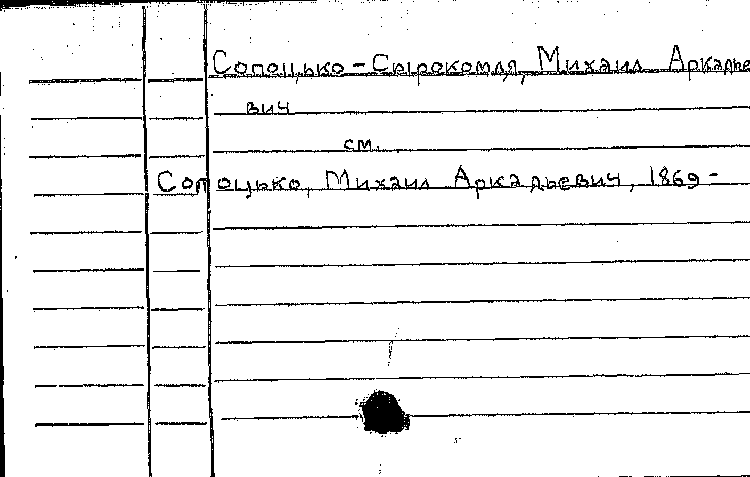 Сопоцько-Сырокомля, Михаил Аркадье
вич
см.
Сопоцько, Михаил Аркадьевич, 1869-